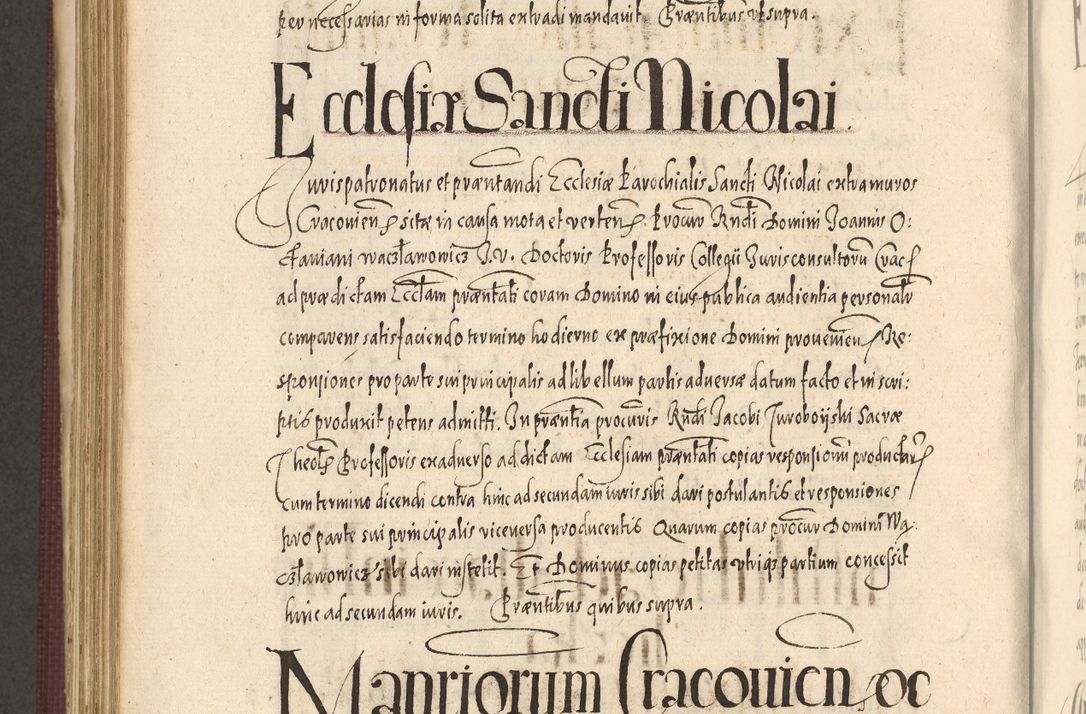 per necessarias in forma solita extradi mandavit. Præntibus ut supra.
Ecclesiæ Sancti Nicolai
Jurispatronatus et præntandi Ecclesiæ Parochialis Sancti Nicolai extra muros
Cracovien sitæ in causa mota et verten. Procur Rndi Domini Joannis O:
ctaviani waczławowicz J. V. Doctoris Professoris Collegii Jurisconsultorū Crac
ad prædictam Ecclam præntati coram Domino in eius publica audientia personalr
comparens satisfaciendo termino hodierno ex præfixione Domini provenien Re:
sponsiones pro parte sui principalis ad libellum partis adversæ datum facto et in scri:
ptis produxit petens admitti. In præntia procuris Rndi Jacobi Turoboyski Sacræ
Theol Professoris ex adverso ad dictam Ecclesiam præntati copias responsionū productar
cum termino dicendi contra hinc ad secundam iuris sibi dari postulantis et responsiones
pro parte sui principalis viceversa producentis Quarum copias procur Domini Wa:
czławowicz sibi dari institit. Et Dominus copias petitas utriq3 partium concessit
hinc ad secundam iuris. Præntibus quibus supra.
Mansiorum Cracovien oc